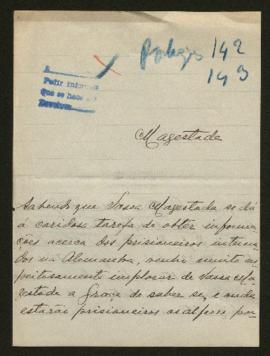 A
Pedir informes
Que se hace
Devolver
142
143
Magestade
Sabendo que Vossa Magestade se dá
á caridosa tarefa de obter informa-
ções acerca dos prisioneiros interna-
dos na Alemanha, venho muito res-
peitosamente implorar de Vossa Ma-
gestade a Graça de saber se, e onde
estarão prisioneiros os alferes por-